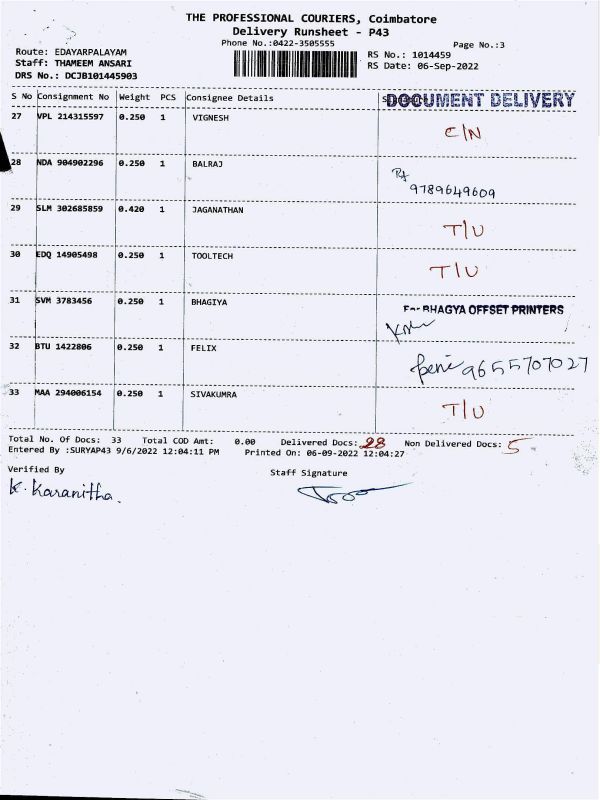 THE PROFESSIONAL COURIERS, Coimbatore
Delivery Runsheet - P43
Phone No.:0422-3505555
Page No.:3
Route: EDAYARPALAYAM
Staff: THAMEEM ANSARI
DRS No.: DCJB101445903
RS No.: 1014459
RS Date: 06-Sep-2022
S No Consignment No Weight PCS Consignee Details DOCUMENT DELIVERY
27 VPL 214315597 0.250 1 VIGNESH C/N
28 NDA 904902296 0.250 1 BALRAJ
9789649609
29 SLM 302685859 0.420 1 JAGANATHAN T/U
30 EDQ 14905498 0.250 1 TOOLTECH T/U
31 SVM 3783456 0.250 1 BHAGIYA For BHAGYA OFFSET PRINTERS
32 BTU 1422806 0.250 1 FELIX 9655707027
33 MAA 294006154 0.250 1 SIVAKUMRA T/U
Total No. Of Docs: 33 Total COD Amt: 0.00 Delivered Docs: 28 Non Delivered Docs: 5
Entered By :SURYAP43 9/6/2022 12:04:11 PM Printed On: 06-09-2022 12:04:27
Verified By Staff Signature
K. Karanitha.